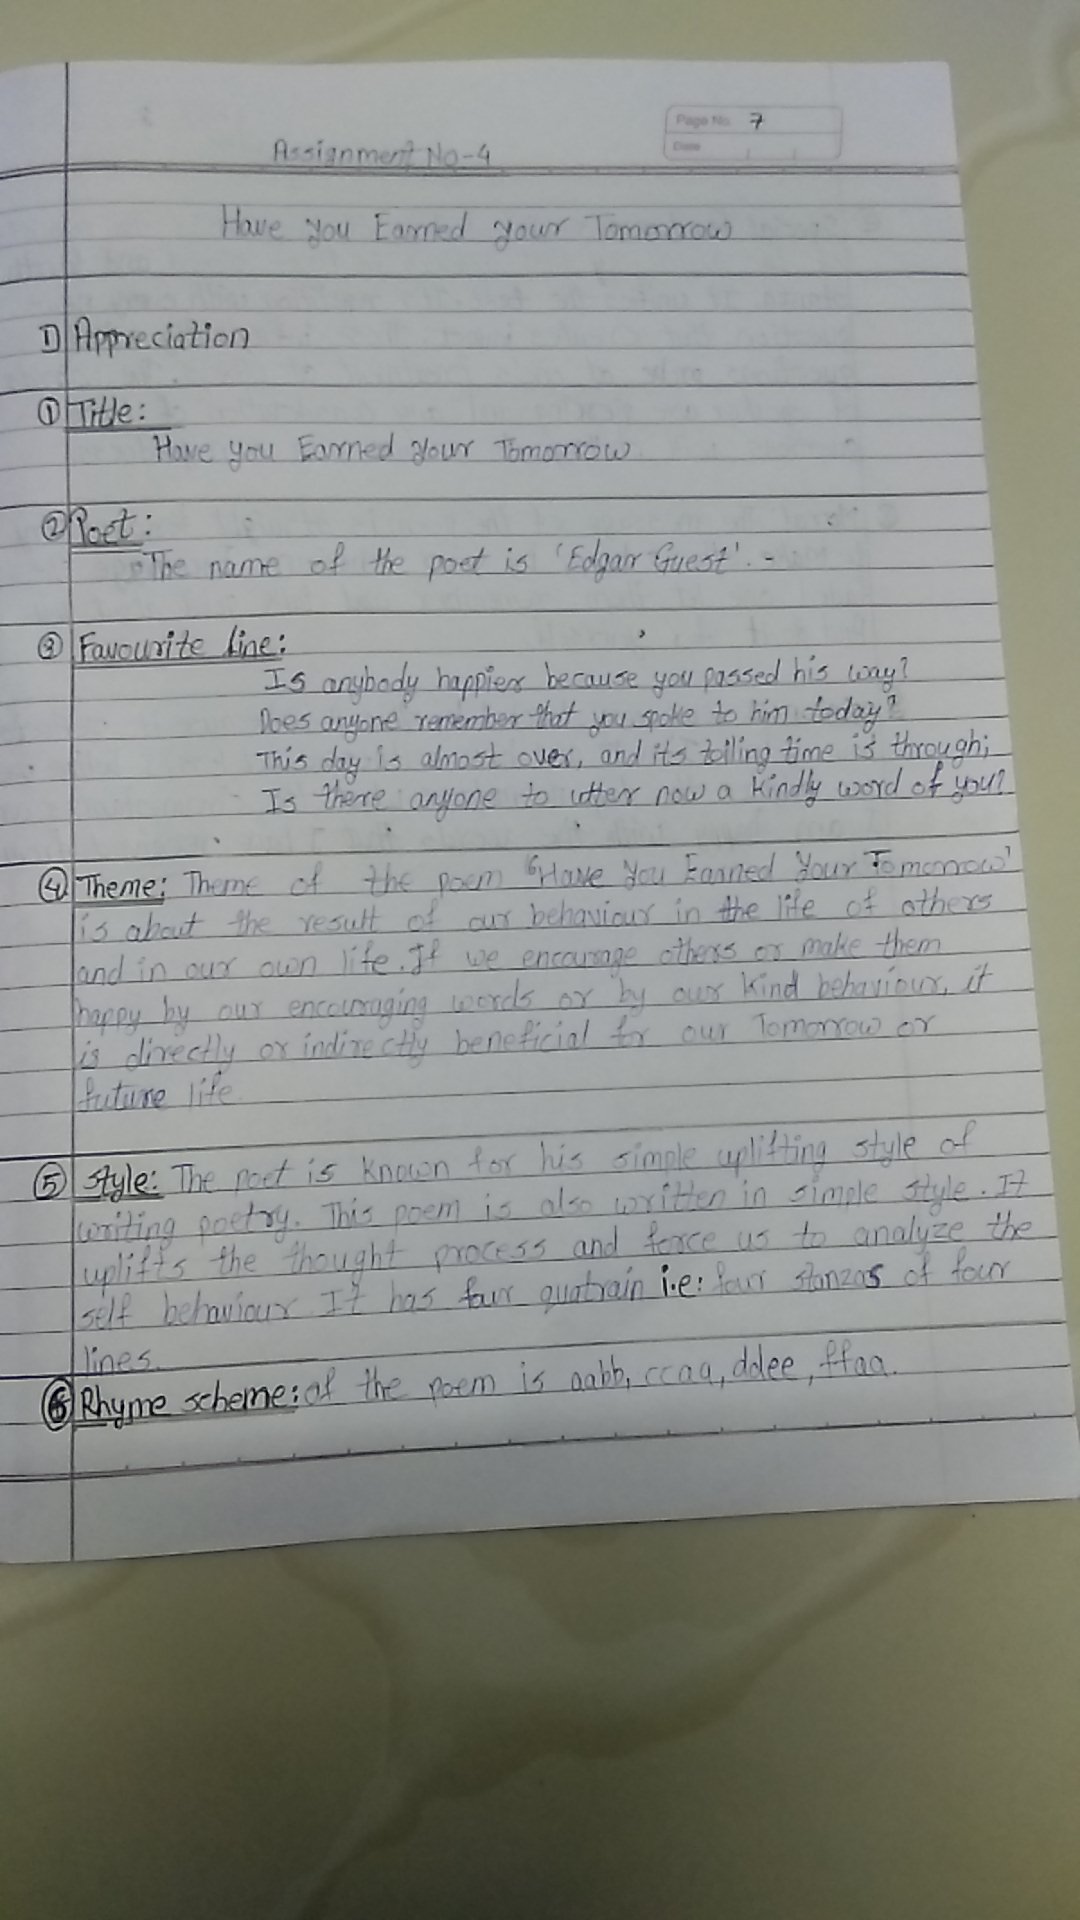 Page No. 7
Date
Assignment No-4
Have you Earned your Tomorrow
1) Appreciation
① Title:
Have you Earned your Tomorrow
② Poet:
The name of the poet is 'Edgar Guest'.-
③ Favourite line:
Is anybody happier because you passed his way?
Does anyone remember that you spoke to him today?
This day is almost over, and its toiling time is through;
Is there anyone to utter now a kindly word of you?
④ Theme: Theme of the poem "Have You Earned Your Tomorrow'
is about the result of our behaviour in the life of others
and in our own life. If we encourage others or make them
happy by our encouraging words or by our kind behaviour, it
is directly or indirectly beneficial for our Tomorrow or
future life.
⑤ Style: The poet is known for his simple uplifting style of
writing poetry. This poem is also written in simple style. It
uplifts the thought process and force us to analyze the
self behaviour. It has four quatrain i.e: four stanzas of four
lines.
⑥ Rhyme scheme: of the poem is aabb, ccaa, ddee, ffaa.